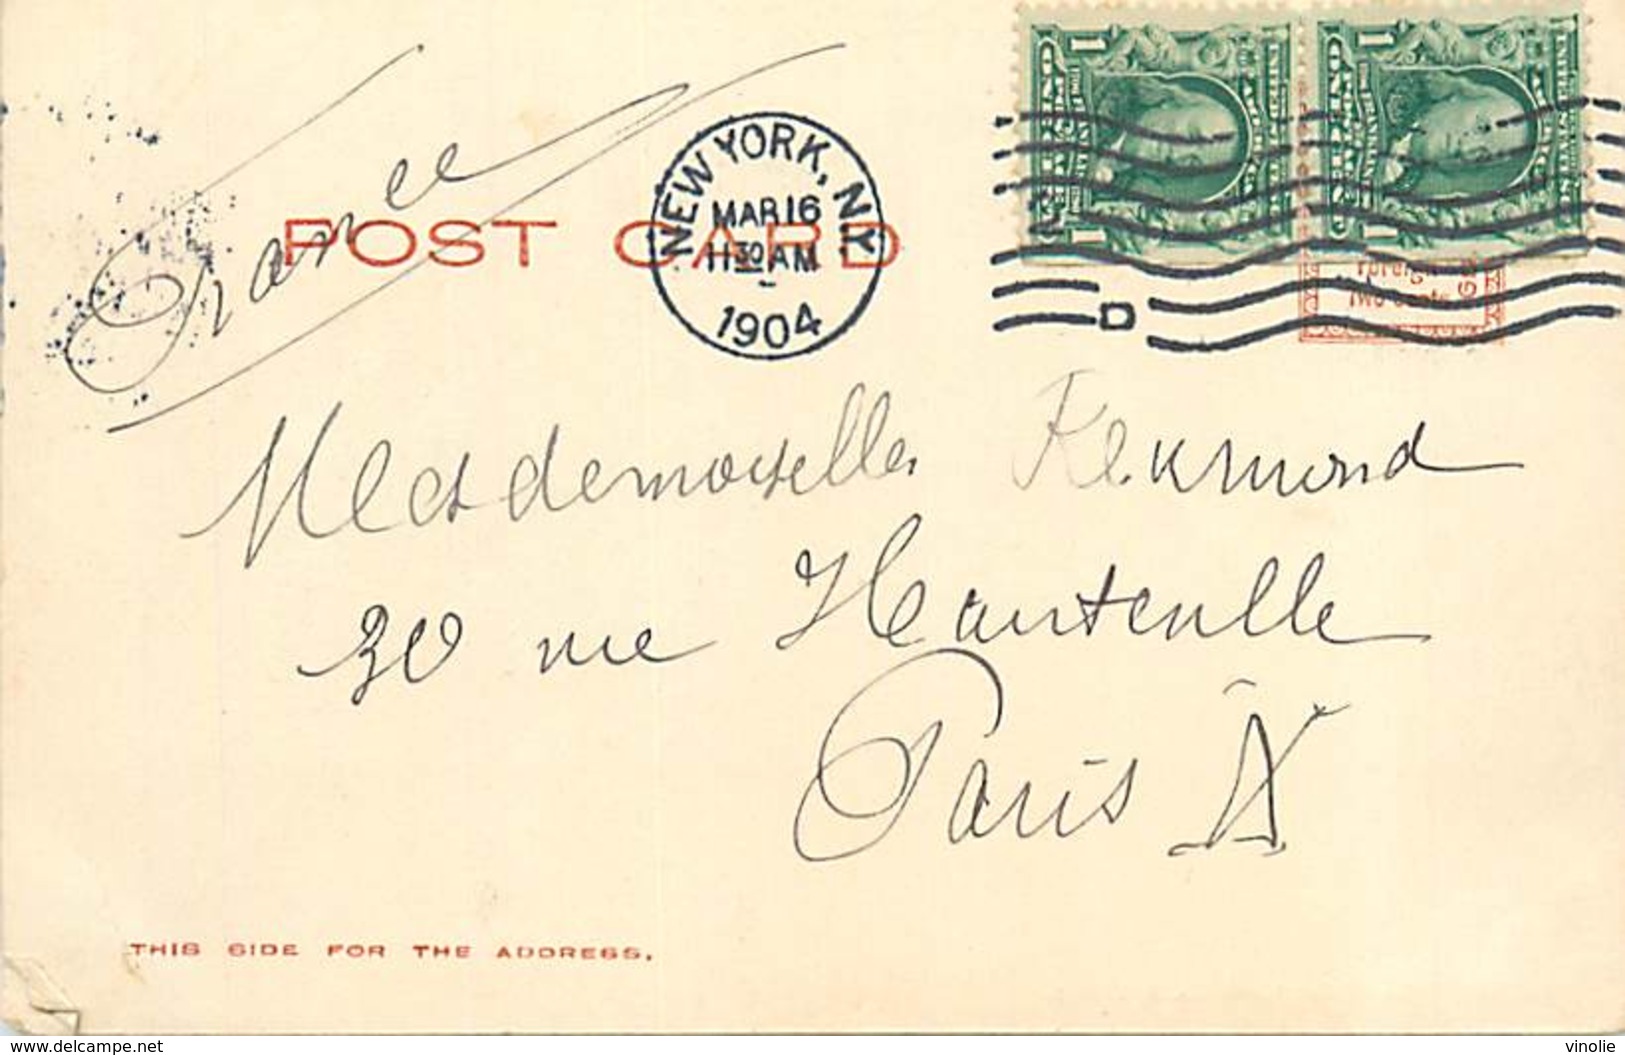 France
POST CARD
NEW YORK, N.Y.
MAR 16
11 30 AM
1904
D
1 1
1 1
Foreign
Two Cents
Mesdemoiselles
30 rue Hauteville
Paris X
THIS SIDE FOR THE ADDRESS.
www.delcampe.net
vinolie